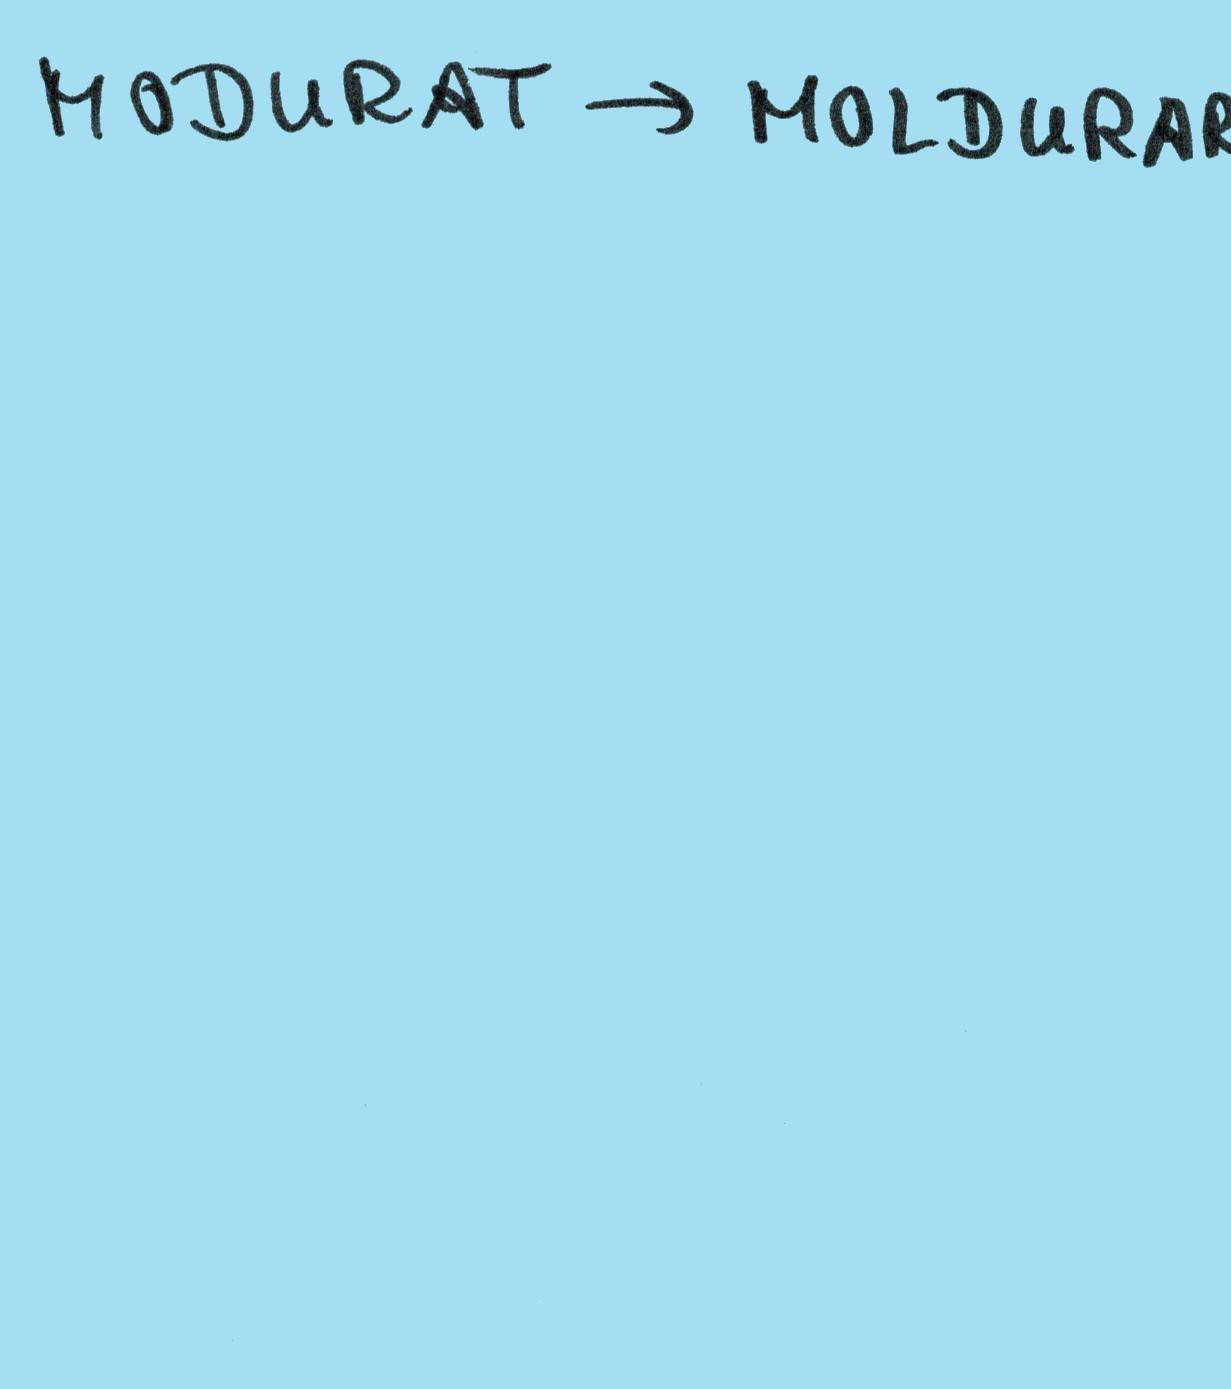 MODURAT → MOLDURAR